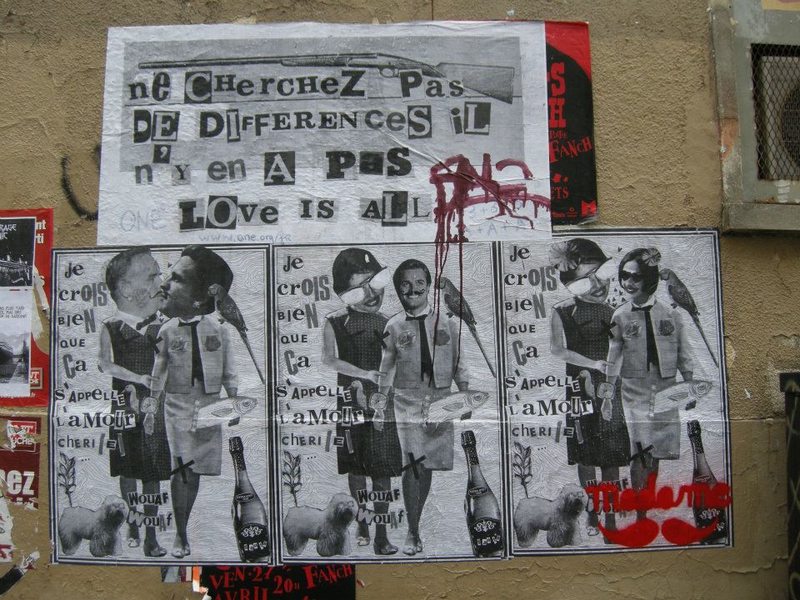 ne CHercheZ Pas
DE DIFFERENceS iL
n'Y en A PaS
LOve IS ALL
ONE
www.one.org/fr
+A+A
S
H
FANCH
TS
Je
croIS
BIEN
QUE
Ca
S'APPELLE
LaMOUr
CHERI/E
...
WOUAF
WOUAF
Je
croIS
BIEN
QUE
Ca
S'APPELLE
LaMOUr
CHERI/E
...
WOUAF
WOUAF
Je
croIS
BIEN
QUE
Ca
S'APPELLE
LaMOUr
CHERI/E
...
WOUAF
madame
ez
VEN·27 FANCH
AVRIL 20H